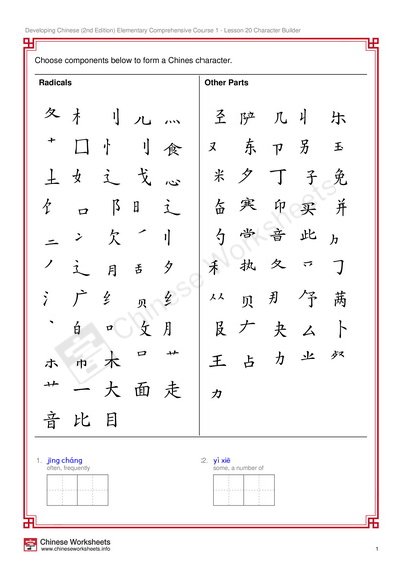 Developing Chinese (2nd Edition) Elementary Comprehensive Course 1 - Lesson 20 Character Builder
Choose components below to form a Chines character.
Radicals
夂 木 刂 儿 灬
十 囗 忄 刂 食
土 女 辶 戈 心
饣 口 阝 日 辶
二 冫 欠 亻 刂
丿 辶 月 舌 夕
氵 广 纟 贝 纟
丶 白 口 攵 月
木 巾 木 口 艹
艹 一 大 面 走
音 比 目
Other Parts
几 乐
又 东 卩 另 玉
米 夕 丁 子 免
卣 寒 卬 买 并
勺 音 此
禾 执 夂 乛 刁
贝 予 两
夬 么 卜
王 占 力 业
力
Chinese Worksheets
1. jīng cháng
often, frequently
2. yì xiē
some, a number of
Chinese Worksheets
www.chineseworksheets.info
1